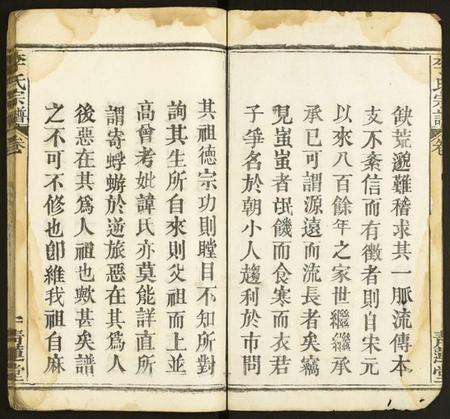 李氏宗譜
卷
青蓮堂
歛荒邈難稽求其一脈流傳本
支不紊信而有徵者則自宋元
以來八百餘年之家世繼繼承
承已可謂源遠而流長者矣竊
見蚩蚩者氓饑而食寒而衣君
子爭名於朝小人趨利於市問
其祖德宗功則瞠目不知所對
詢其生所自來則父祖而上並
高曾考妣諱氏亦莫能詳直所
謂寄蜉蝣於逆旅惡在其爲人
後惡在其爲人祖也歟甚矣譜
之不可不修也卽維我祖自麻
李氏宗譜
卷
一
青蓮堂